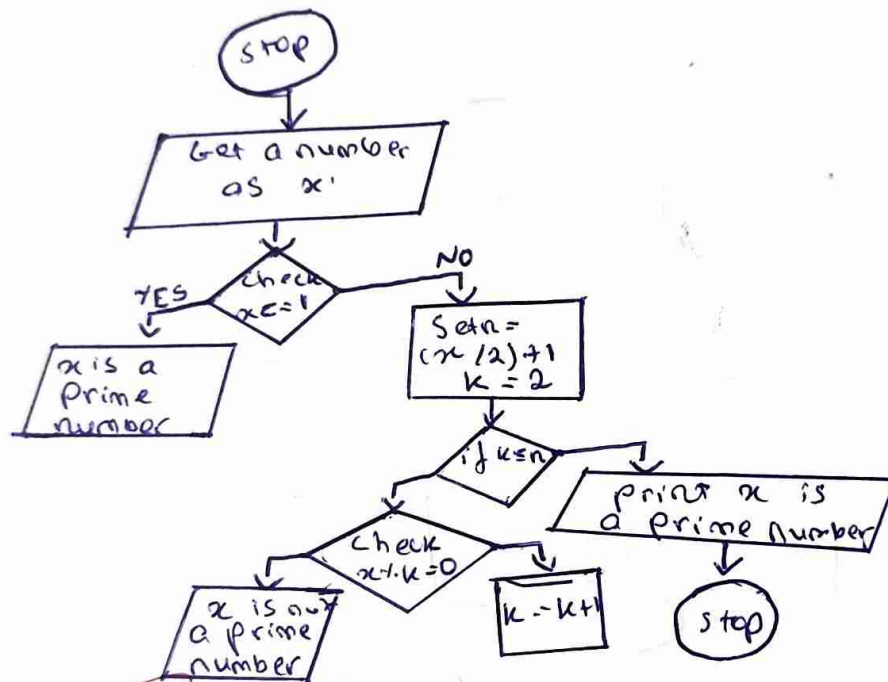 stop
Get a number
as x'
check
x<=1
YES
NO
x is a
prime
number
Set n =
(x/2)+1
k = 2
if k≤n
print x is
a prime number
check
x%k=0
x is not
a prime
number
k=k+1
stop